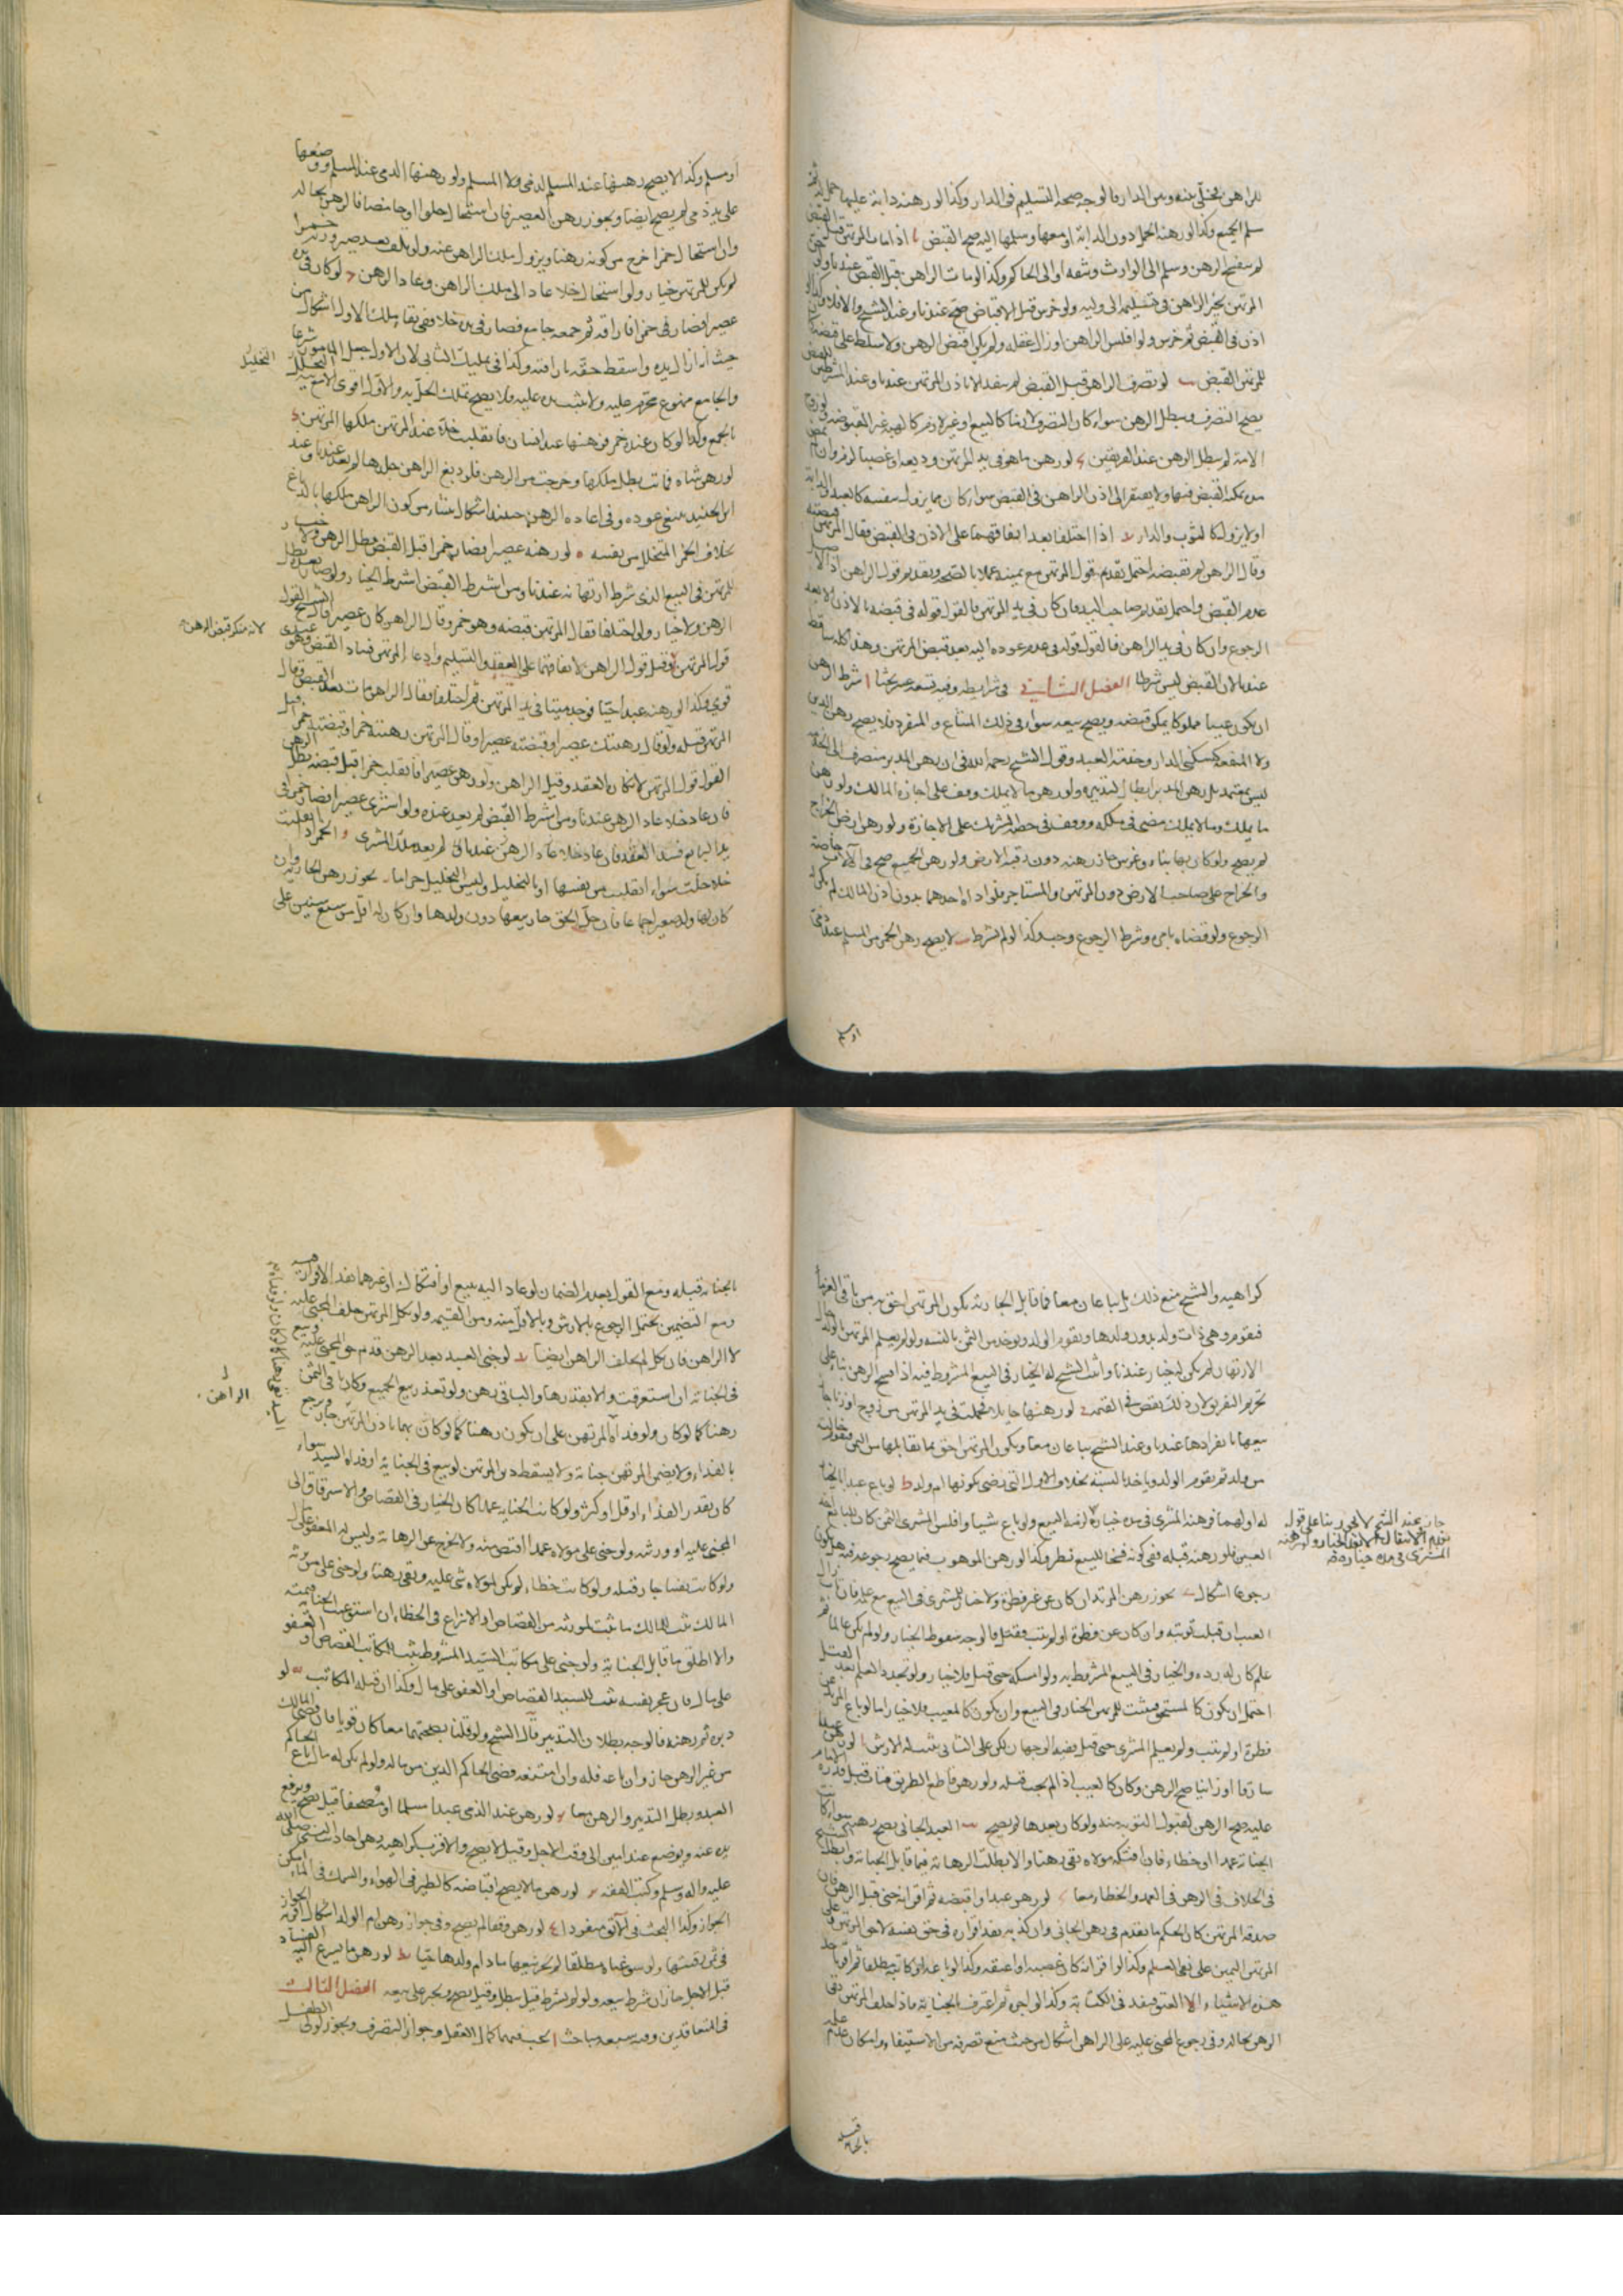 للراهن بخلّى بينه وبين الدار فالوجه صحة التسليم فى الدار وكذا لو رهنه دابة عليها حمل له ثم
سلم الجميع وكذا لو رهنه الحمل دون الدابة او معها وسلمها اليه صح القبض اذا مات المرتهن قبل القبض
لم ينفسخ الرهن وسلم الى الوارث وثيقة او الى الحاكم وكذا لو مات الراهن قبل القبض عندنا ولو
المرتهن يخير الراهن فى تسليمه الى وليه ولو خرس قبل الاقباض صح عندنا وعند الشيخ والا فلا
اذن فى القبض ثم خرس ولو افلس الراهن او زال عقله ولم يكن اقبض الرهن ولا سلط على قبضه
للمرتهن القبض لو تصرف الراهن قبل القبض لم ينفذ الا باذن المرتهن عندنا وعند المشترطين
يصح التصرف ويبطل الرهن سواء كان التصرف لازما كالبيع او غير لازم كالهبة غير المقبوضة ولو زوج
الامة لم يبطل الرهن عند الفريقين لو رهن ما هو فى يد المرتهن وديعة او غصبا لزم وان لم يمض
مدة يمكنه القبض فيها ولا يفتقر الى اذن الراهن فى القبض سواء كان مما يزول بنفسه كالعبد والدابة
او لا يزول كالثوب والدار اذا اختلفا بعد اتفاقهما على الاذن فى القبض فقال المرتهن قبضته
وقال الراهن لم تقبضه احتمل تقديم قول المرتهن مع يمينه عملا بالصحة وتقديم قول الراهن اذ الاصل
عدم القبض واحتمل تقديم صاحب اليد فان كان فى يد المرتهن فالقول قوله فى قبضه بالاذن لا بعد
الرجوع وان كان فى يد الراهن فالقول قوله فى عدم عوده اليه بعد قبض المرتهن وهذا كله ساقط
عندنا لان القبض ليس شرطا الفصل الثانى فى شرايطه وفيه تسعة عشر بحثا ا شرط الرهن
ان يكون عينا مملوكا يمكن قبضه ويصح بيعه سواء فى ذلك المشاع والمنفرد فلا يصح رهن الدين
ولا المنفعة كسكنى الدار وخدمة العبد وقول الشيخ رحمه الله فى ان رهن المدبر منصرف الى الخدمة
ليس بمعتمد بل رهن المدبر ابطال لتدبيره ولو رهن ما لا يملك وقف على اجازة المالك ولو رهن
ما يملك وما لا يملك مضى فى ملكه ووقف فى حصة الشريك على الاجازة ولو رهن ارض الخراج
لم يصح ولو كان بها بناء وغرس جاز رهنه دون رقبة الارض ولو رهن الجميع صح فى الآلات خاصة
والخراج على صاحب الارض دون المرتهن والمستاجر فلو اداه احدهما بدون اذن المالك لم يكن له
الرجوع ولو قضاه بامره وشرط الرجوع وجب وكذا لو لم يشرط ب لا يصح رهن الخمر من المسلم عند ذمى
او مسلم
او مسلم وكذا لا يصح رهنها عند المسلم لذمى ولا المسلم ولو رهنها الذمى عند المسلم ووضعها
على يد ذمى لم يصح ايضا ويجوز رهن العصير فان استحال حلوا او حامضا فالرهن بحاله
وان استحال خمرا خرج من كونه رهنا ويزول ملك الراهن عنه ولو تلف بعد صيرورته خمرا
لم يكن للمرتهن خيار ولو استحال خلا عاد الى ملك الراهن وعاد الرهن لو كان فى يده
عصير فصار فى يده خمرا فاراقه ثم جمعه جامع فصار فى يده خلا ففى بقاء ملك الاول اشكال من
حيث انه ازال يده واسقط حقه باراقته وكذا فى تمليك الثانى لان الاول فعل المامور شرعا التخليل
والجامع ممنوع محرم عليه ولا يثبت يده عليه فلا يصح تملك الخل به والاول اقوى الا مع نية التخليل
بالجمع وكذا لو كان عنده خمر فرهنها عند انسان فانقلبت خلا عند المرتهن ملكها المرتهن
لو رهن شاة فماتت بطل ملكها وخرجت من الرهن فلو دبغ الراهن جلدها لم يعد عندنا وعند
ابن الجنيد ينبغى عوده وفى اعادة الرهن حينئذ اشكال ينشاء من كون الراهن ملكها بالدباغ
بخلاف الخمر المتخلل من نفسه ه لو رهنه عصيرا فصار خمرا قبل القبض بطل الرهن ولا خيار
للمرتهن فى البيع الذى شرط ارتهانه عندنا ومن اشترط القبض اشترط الخيار ولو صار بعده بطل
الرهن ولا خيار ولو اختلفا فقال المرتهن قبضته وهو خمر وقال الراهن كان عصيرا قال الشيخ القول
قول المرتهن وقيل قول الراهن لاتفاقهما على العقد والتسليم وادعاء المرتهن فساد القبض وهو عندى
لانه منكر قبض الرهن
قوى وكذا لو رهنه عبدا حيا فوجد ميتا فى يد المرتهن ثم اختلفا فقال الراهن مات بعد القبض وقال
المرتهن قبله ولو قال رهنتك عصيرا وقبضته عصيرا وقال المرتهن رهنته خمرا وقبضته خمرا قيل
القول قول المرتهن لانكاره العقد وقيل الراهن ولو رهن عصيرا فانقلب خمرا قبل قبضه بطل الرهن
فان عاد خلا عاد الرهن عندنا ومن اشترط القبض لم يعد عنده ولو اشترى عصيرا فصار خمرا فى
يد البايع فسد العقد فان عاد خلا عاد الرهن عندنا لم يعد ملك المشترى و الخمر اذا انقلبت
خلا حلت سواء انقلبت من نفسها او بالتخليل وليس التخليل حراما يجوز رهن الجارية وان
كان لها ولد صغير اجماعا فان حل الحق جاز بيعها دون ولدها وان كان له اقل من سبع سنين على
كراهية والشيخ منع ذلك بل يباعان معا فما قابل الجارية يكون المرتهن احق به من باقى الغرماء
فيقوم وهى ذات ولد بدون ولدها ويقوم الولد ويوخذ من الثمن بالنسبة ولو لم يعلم المرتهن بالولد حال
الارتهان لم يكن له خيار عندنا واثبت الشيخ له الخيار فى البيع المشروط فيه اذا فسخ الرهن بناء على
تحريم التفريق لان ذلك ينقص فى القيمة لو رهنها حايلا فحملت فى يد المرتهن من زوج او زنا جاز
بيعها بانفرادها عندنا وعند الشيخ يباعان معا ويكون المرتهن احق بما تقابلها من الثمن فيقوم خالية
من ولد ثم يقوم الولد وياخذ بالنسبة بخلاف الاول التى رضى بكونها ام ولد ط لو باع عبدا بالخيار
له او لهما فرهنه المشترى فى مدة خياره لزمه البيع ولو باع شيا وافلس المشترى الثمن كان للبايع اخذ
جاز وعند الشيخ لا يجوز بناء على قول
بعدم الانتقال الا بانقضاء الخيار ولو رهنه
المشترى فى مدة خياره صح
العين فلو رهنه قبله ففى كونه فسخا للبيع نظر وكذا لو رهن الموهوب فيما يصح رجوعه فيه هل يكون
رجوعا اشكال يجوز رهن المرتد ان كان عن غير فطرة ولا خيار للمشترى فى البيع مع علمه فان تاب زال
العيب ان قبلت توبته وان كان عن فطرة او لم يتب فقتل فالوجه سقوط الخيار ولو لم يكن عالما ثم
علم كان له رده والخيار فى البيع المشروط به ولو امسكه حتى قتل فلا خيار ولو تجدد العلم بعد القتل
احتمل ان يكون كالمستحق فيثبت للمرتهن الخيار فى البيع وان يكون كالمعيب فلا خيار اما لو باع المرتد عن
فطرة او لم يتب ولم يعلم المشترى حتى قتل ففيه الوجهان لكن على الثانى يثبت له الارش لو رهن عبدا
سارقا او زانيا صح الرهن وكان كالعيب اذا لم يجب قتله ولو رهن قاطع الطريق فتاب قبل قدرة الامام
عليه صح الرهن لقبول التوبة منه ولو كان بعدها لم يصح العبد الجانى يصح رهنه سواء كانت
الجناية عمدا او خطاء فان افتكه مولاه بقى رهنا والا بطلت الرهانة فيما قابل الجناية وابطله الشيخ
فى الخلاف فى الرهن فى العمد والخطاء معا لو رهن عبدا واقبضه ثم اقر انه جنى قبل الرهن فان
صدقه المرتهن كان الحكم ما تقدم فى رهن الجانى وان كذبه نفذ اقراره فى حق نفسه لا حق المرتهن وعلى
المرتهن اليمين على نفى العلم وكذا لو اقر انه كان غصبه او اعتقه وكذا لو باعه او كاتبه مطلقا ثم اقر باحد
هذه الاشياء الا العتق فينفذ فى الكتابة وكذا لو اجره ثم اعترف الجناية فاذا حلف المرتهن بقى
الرهن بحاله وفى رجوع المجنى عليه على الراهن اشكال من حيث منع تصرفه من الاستيفاء وامكان عدم علمه
بالجناية قبله
بالجناية قبله ومع القول بعدم الضمان لو عاد اليه ببيع او افتكاك او غيرهما نفذ الاقرار فيه
ومع التضمين يحتمل الرجوع بالارش وبالاقل منه ومن القيمة ولو نكل المرتهن حلف المجنى عليه
لا الراهن فان نكل لم يحلف الراهن ايضا لو جنى العبد بعد الرهن قدم حق المجنى عليه وبيع
فى الجناية ان استغرقت والا بقدرها والباقى رهن ولو تعذر بيع الجميع وكان باقى الثمن
الراهن
رهنا كما لو كان ولو فداه المرتهن على ان يكون رهنا كما لو كان بهما باذن المرتهن جاز ورجع
بالفداء ولا يضمن المرتهن جناية ولا يسقط دين المرتهن لو بيع فى الجناية او فداه السيد سواء
كان بقدر الفداء او اقل او اكثر ولو كانت الجناية عمدا كان الخيار فى القصاص والاسترقاق الى
المجنى عليه او ورثته ولو جنى على مولاه عمدا اقتص منه ولا يخرج عن الرهانة وليس له العفو على
ولو كانت نفسا جاز قتله ولو كانت خطاء لم يكن لمولاه شى عليه وبقى رهنا ولو جنى على من يرثه
المالك ثبت للمالك ما يثبت لمورثه من القصاص او الانزاع فى الخطاء ان استوعبت الجناية قيمته
والا اطلق ما قابل الجناية ولو جنى على مكاتب السيد المشروط ثبت للمكاتب القصاص او العفو
على مال فان عجز نفسه ثبت للسيد القصاص او العفو على مال وكذا ان قتله المكاتب لو
دبره ثم رهنه فالوجه بطلان التدبير قال الشيخ ولو قلنا بصحتهما معا كان قويا فان قضى المالك
من غير الرهن جاز وان باعه فله وان امتنع قضى الحاكم الدين من ماله ولو لم يكن له مال باع الحاكم
العبد وبطل التدبير والرهن معا لو رهن عند الذمى عبدا مسلما او مصحفا قيل يصح ويرفع
يده عنه ويوضع عند امين الى وقت الاجل وقيل لا يصح والاقرب كراهية رهن احاديث النبى صلى الله
عليه واله وسلم وكتب الفقه لو رهن ما لا يصح اقباضه كالطير فى الهواء والسمك فى الماء امكن
الجواز وكذا البحث فى الآبق لو رهن وقفا لم يصح وفى جواز رهن ام الولد اشكال اقربه الجواز
فى ثمن رقبتها ولو سوغناه مطلقا لم يجز بيعها ما دام ولدها حيا ط لو رهن ما يسرع اليه الفساد
قبل الاجل جاز ان شرط بيعه ولو لم يشرط قيل يبطل وقيل يصح ويجبر على بيعه الفصل الثالث
فى المتعاقدين وفيه سبعة مباحث ا يجب فيهما كمال العقل وجواز التصرف ويجوز لولى الطفل